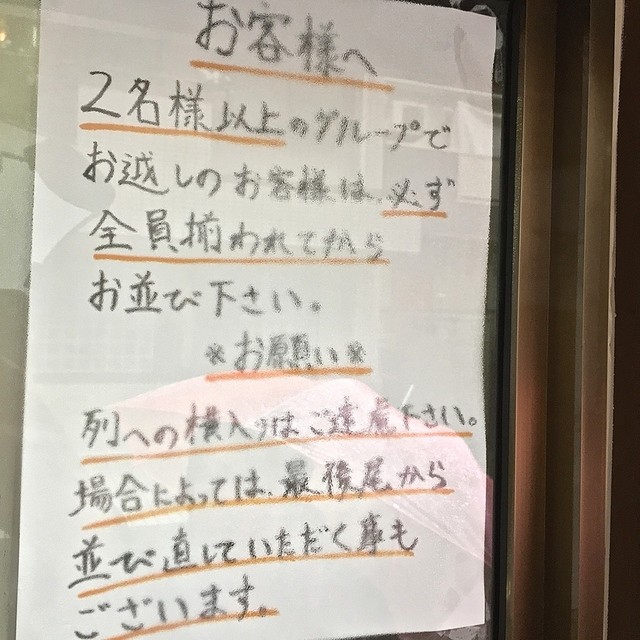 お客様へ
2名様以上のグループで
お越しのお客様は、必ず
全員揃われてから
お並び下さい。
*お願い*
列への横入りはご遠慮下さい。
場合によっては、最後尾から
並び直していただく事も
ございます。